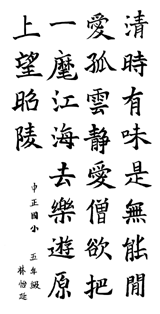 清時有味是無能閒
愛孤雲靜愛僧欲把
一麾江海去樂遊原
上望昭陵
中正國小
五年級